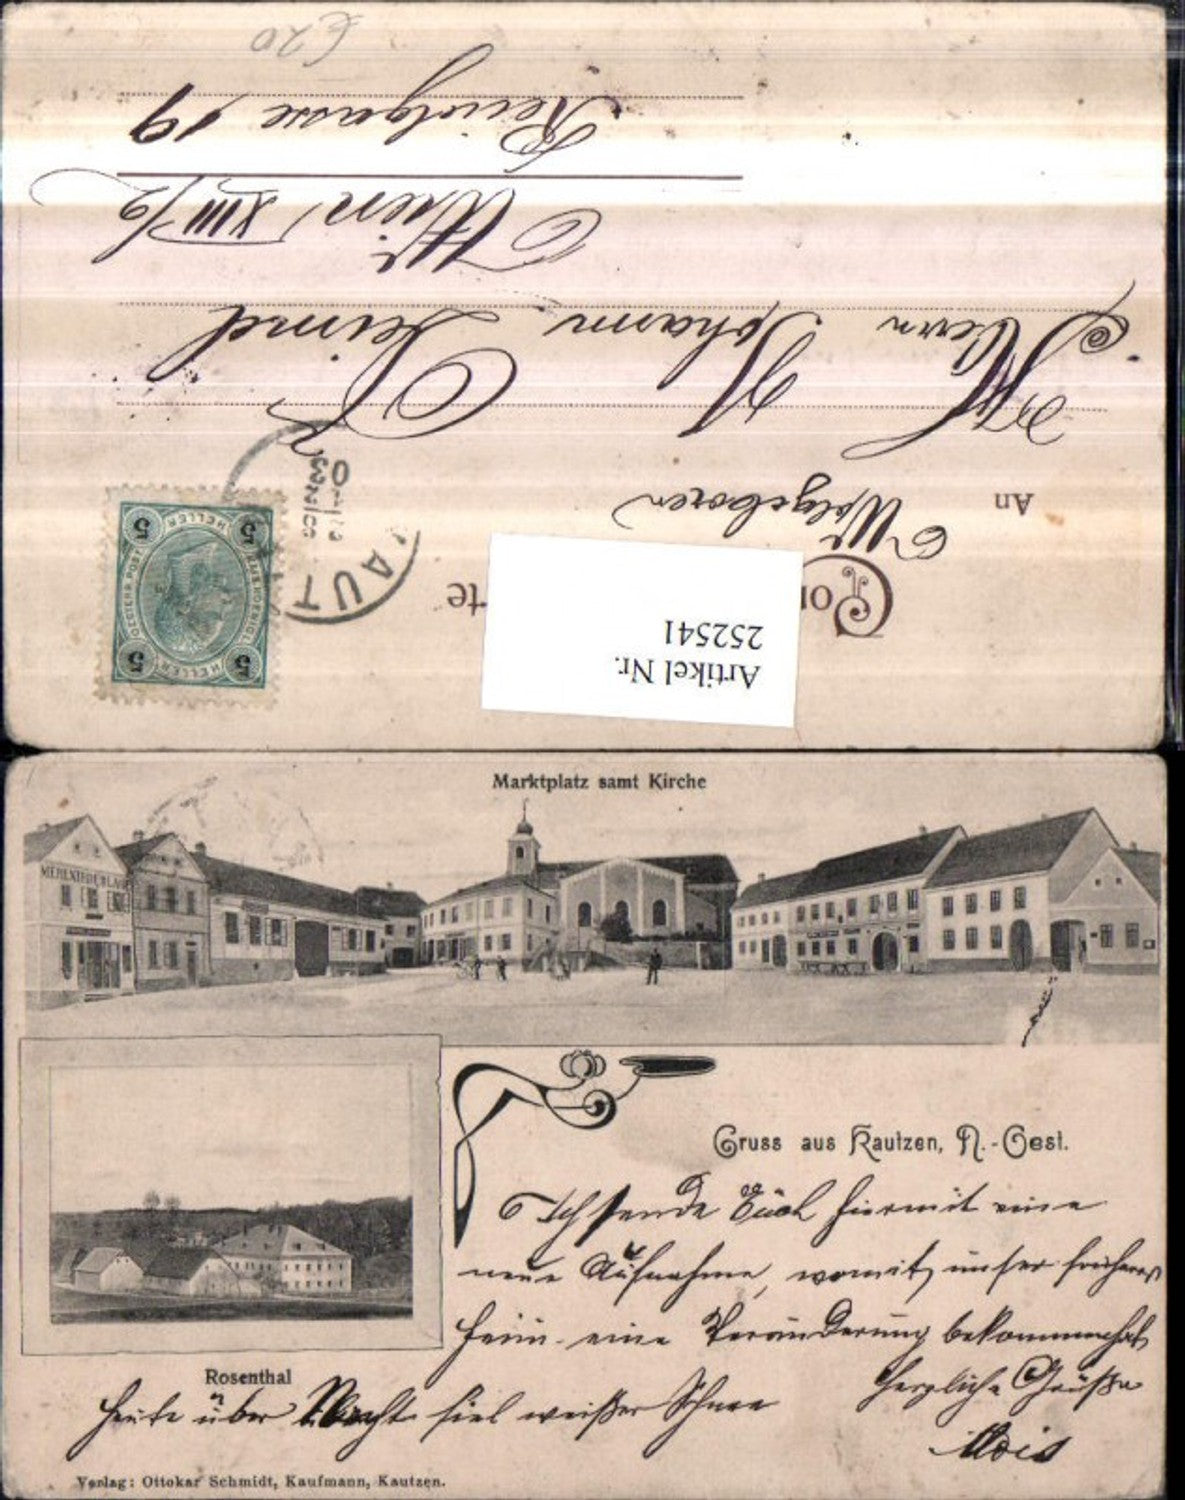 £20
Wien XIII/2
Herrn Johann
An
Wolgeboren
5 HELLER 5
5 HELLER 5
KAUT
Cor rte
Artikel Nr.
252541
Marktplatz samt Kirche
MEHLNIEDERLAGE
Gruss aus Kautzen, N.-Oest.
Ich sende Euch hiermit eine
neue Aufnahme, womit unser früheres
Heim eine Veränderung bekommen hat
Herzliche Grüße
Alois
Rosenthal
Heute über Nacht fiel weißer Schnee
Verlag: Ottokar Schmidt, Kaufmann, Kautzen.